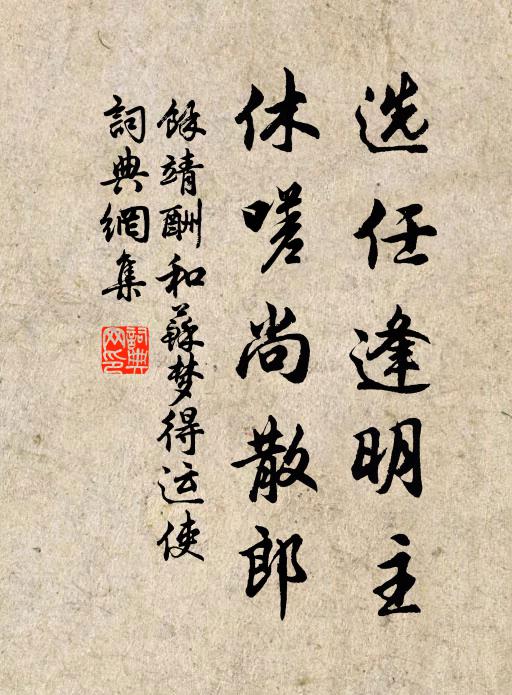 选任逢明主
休嗟尚散郎
馀靖酬和蘇梦得运使
詞典網集
詞典网印